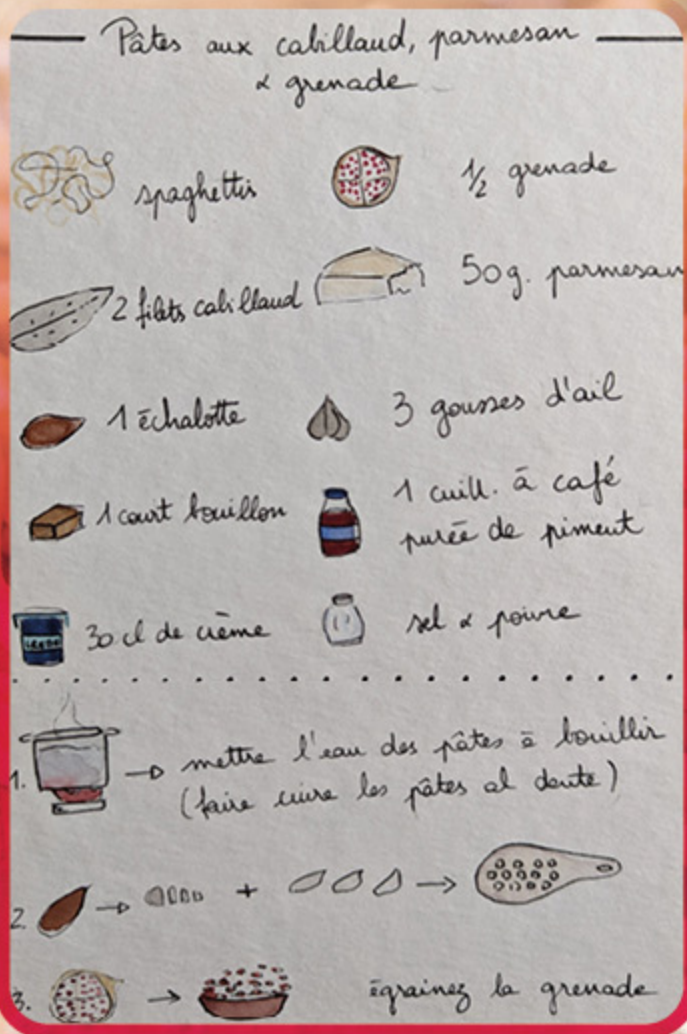 Pâtes aux cabillaud, parmesan
& grenade
spaghettis
1/2 grenade
2 filets cabillaud
50g. parmesan
1 échalotte
3 gousses d'ail
1 court bouillon
1 cuill. à café
purée de piment
30 cl de crème
sel & poivre
1.
mettre l'eau des pâtes à bouillir
(faire cuire les pâtes al dente)
2.
+
3.
égrainez la grenade